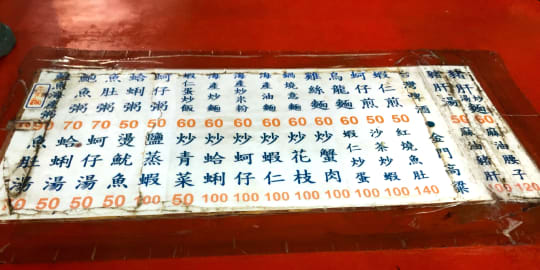 魚肚粥
蛤蜊粥
蚵仔粥
蝦仁蛋炒飯
海產炒飯
海產炒米粉
海產油麵
鍋燒意麵
雞絲麵
烏龍麵
蚵仔煎
蝦仁煎
豬肝湯
90 70 70 50 50 60 60 60 60 60 60 60 50 50
魚肚湯
蛤蜊湯
蚵仔湯
燙魷魚
鹽蒸蝦
炒青菜
炒蛤蜊
炒蚵仔
炒蝦仁
炒花枝
炒蟹肉
蝦仁炒蛋
沙茶炒蝦
紅燒魚肚
金門高粱
麻油豬肝
麻油腰子
70 50 50 50 100 50 100 100 100 100 100 100 100 140 100 120